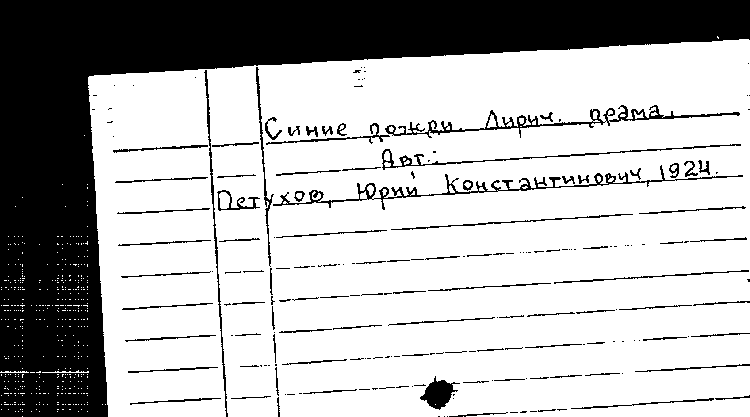 Синие дожди. Лирич. драма.
Авт.:
Петухов, Юрий Константинович, 1924.